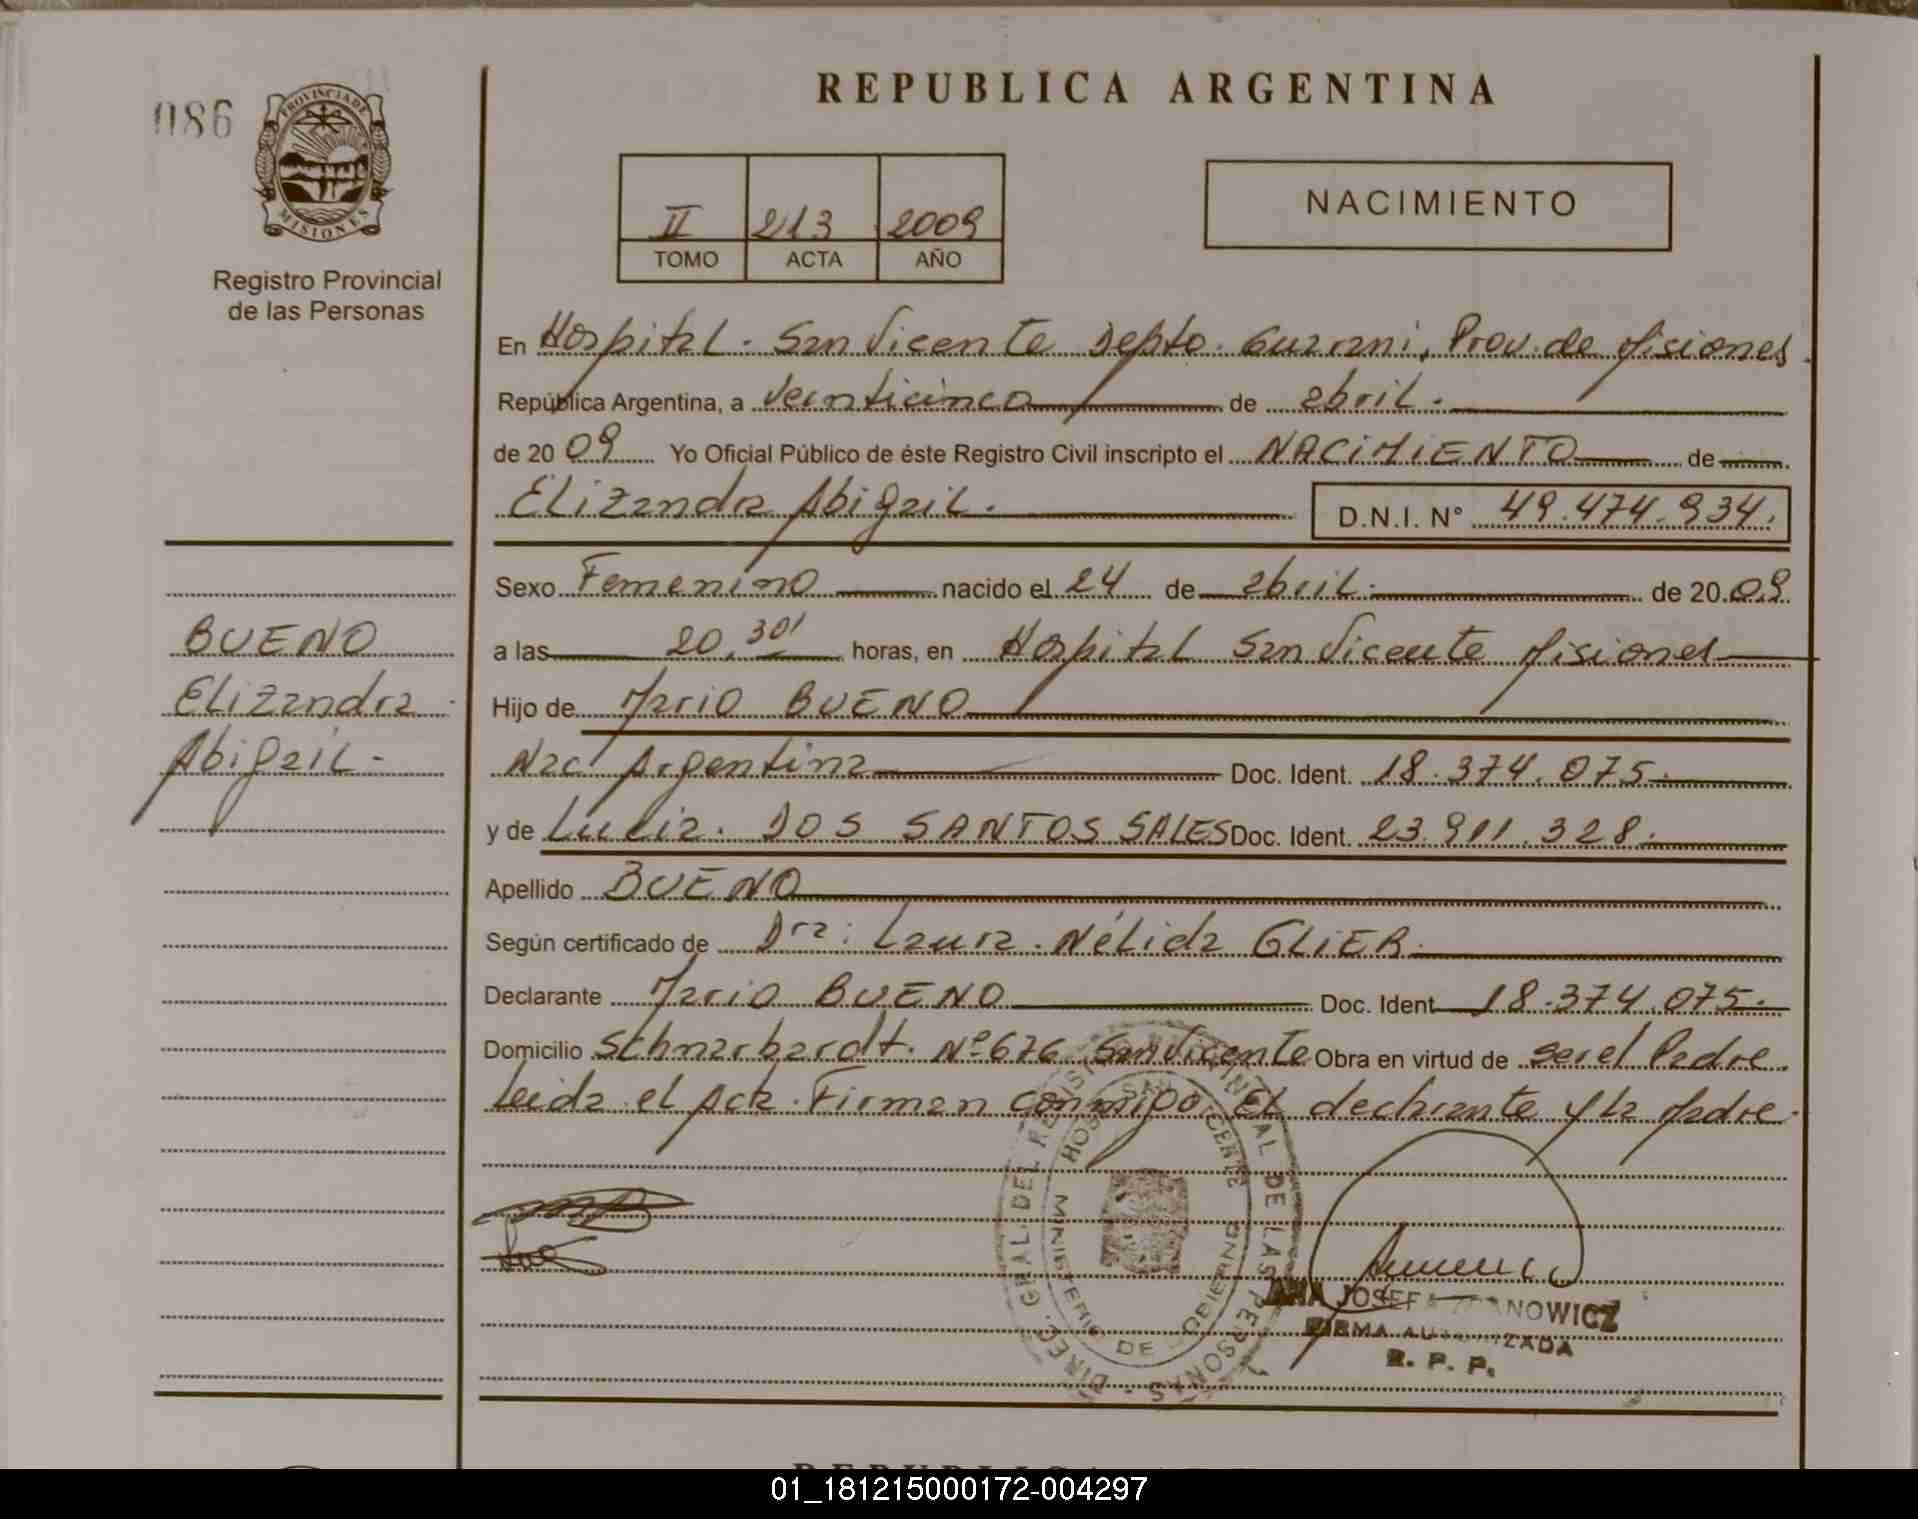 REPUBLICA ARGENTINA
086
PROVINCIA DE
MISIONES
Registro Provincial
de las Personas
II 213 2009
TOMO ACTA AÑO
NACIMIENTO
En Hospital. San Vicente Depto. Guarani, Prov. de Misiones
República Argentina, a Veinticinco de abril.
de 20 09 Yo Oficial Público de éste Registro Civil inscripto el NACIMIENTO de
Elizandra Abigail. D.N.I. N° 49.474.934.
Sexo Femenino nacido el 24 de abril. de 20 09
a las 20,30' horas, en Hospital San Vicente Misiones
Hijo de Mario BUENO
Nac Argentina Doc. Ident. 18.374.075.
y de Lucia. DOS SANTOS SALES Doc. Ident. 23.911.328.
Apellido BUENO
Según certificado de Dra: Laura. Nélida GLIER.
Declarante Mario BUENO Doc. Ident. 18.374.075.
Domicilio Schnarbardt. Nº 676 San Vicente Obra en virtud de ser el Padre
Leida el Acta. Firman conmigo El declarante y La Madre.
BUENO
Elizandra
Abigail-
DIREC. GRAL. DEL REGISTRO PROVINCIAL DE LAS PERSONAS
HOSP. SAN VICENTE
MINISTERIO DE GOBIERNO
ANA JOSEFA ZDANOWICZ
FIRMA AUTORIZADA
R. P. P.
01_181215000172-004297